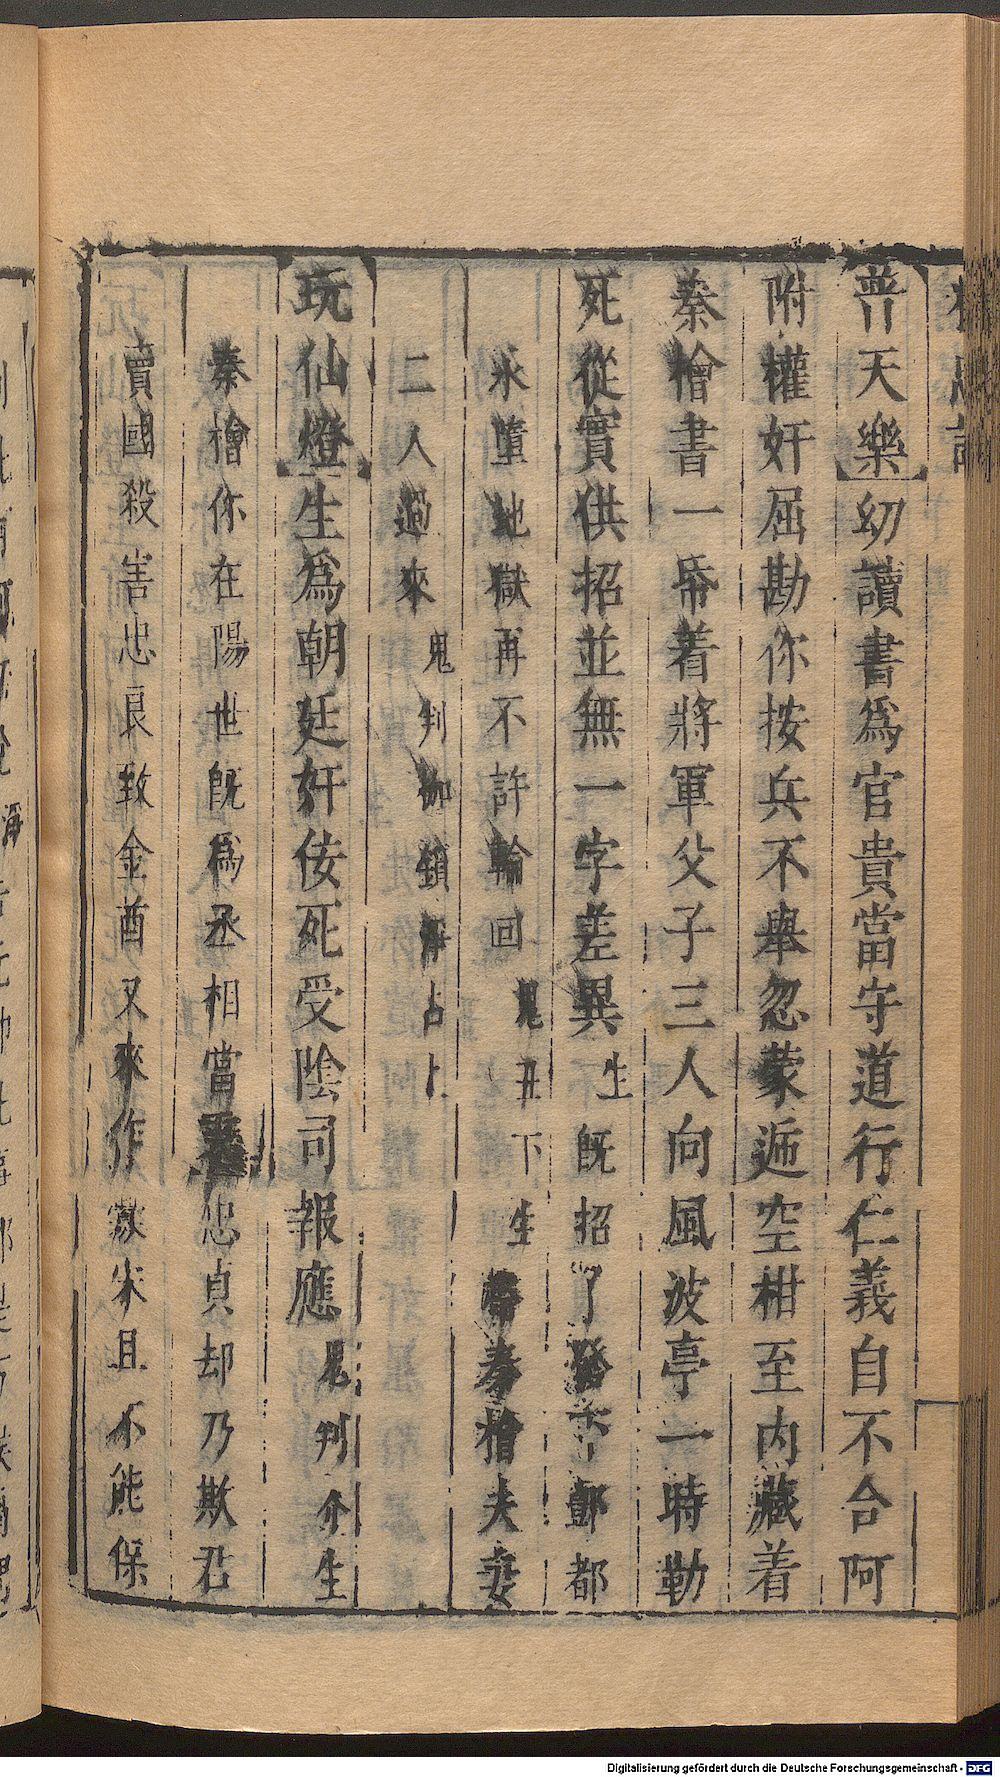 精忠記
普天樂 幼讀書爲官貴當守道行仁義自不合阿
附權奸屈勘你按兵不舉忽蒙遞空柑至内藏着
秦檜書一帋着將軍父子三人向風波亭一時勒
死從實供招並無一字差異 生 既招了發去酆都
永墮地獄再不許輪回 鬼丑下 生 帶秦檜夫妻
二人過來 鬼判枷鎖淨占上
玩仙燈 生爲朝廷奸佞死受陰司報應 見判介生
秦檜你在陽世既爲丞相當秉忠貞却乃欺君
賣國殺害忠良致金酋又來作寇宋且不能保
Digitalisierung gefördert durch die Deutsche Forschungsgemeinschaft - DFG